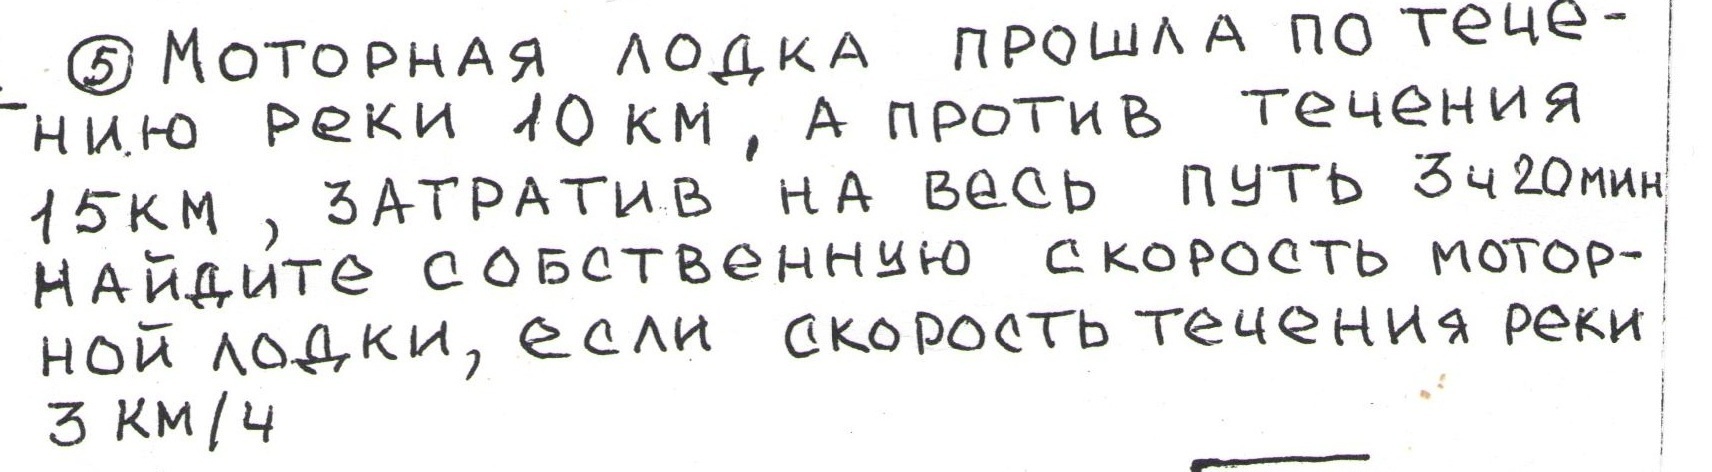 ⑤ Моторная лодка прошла по тече-
нию реки 10 км, а против течения
15км, затратив на весь путь 3ч20мин
найдите собственную скорость мотор-
ной лодки, если скорость течения реки
3 км/ч